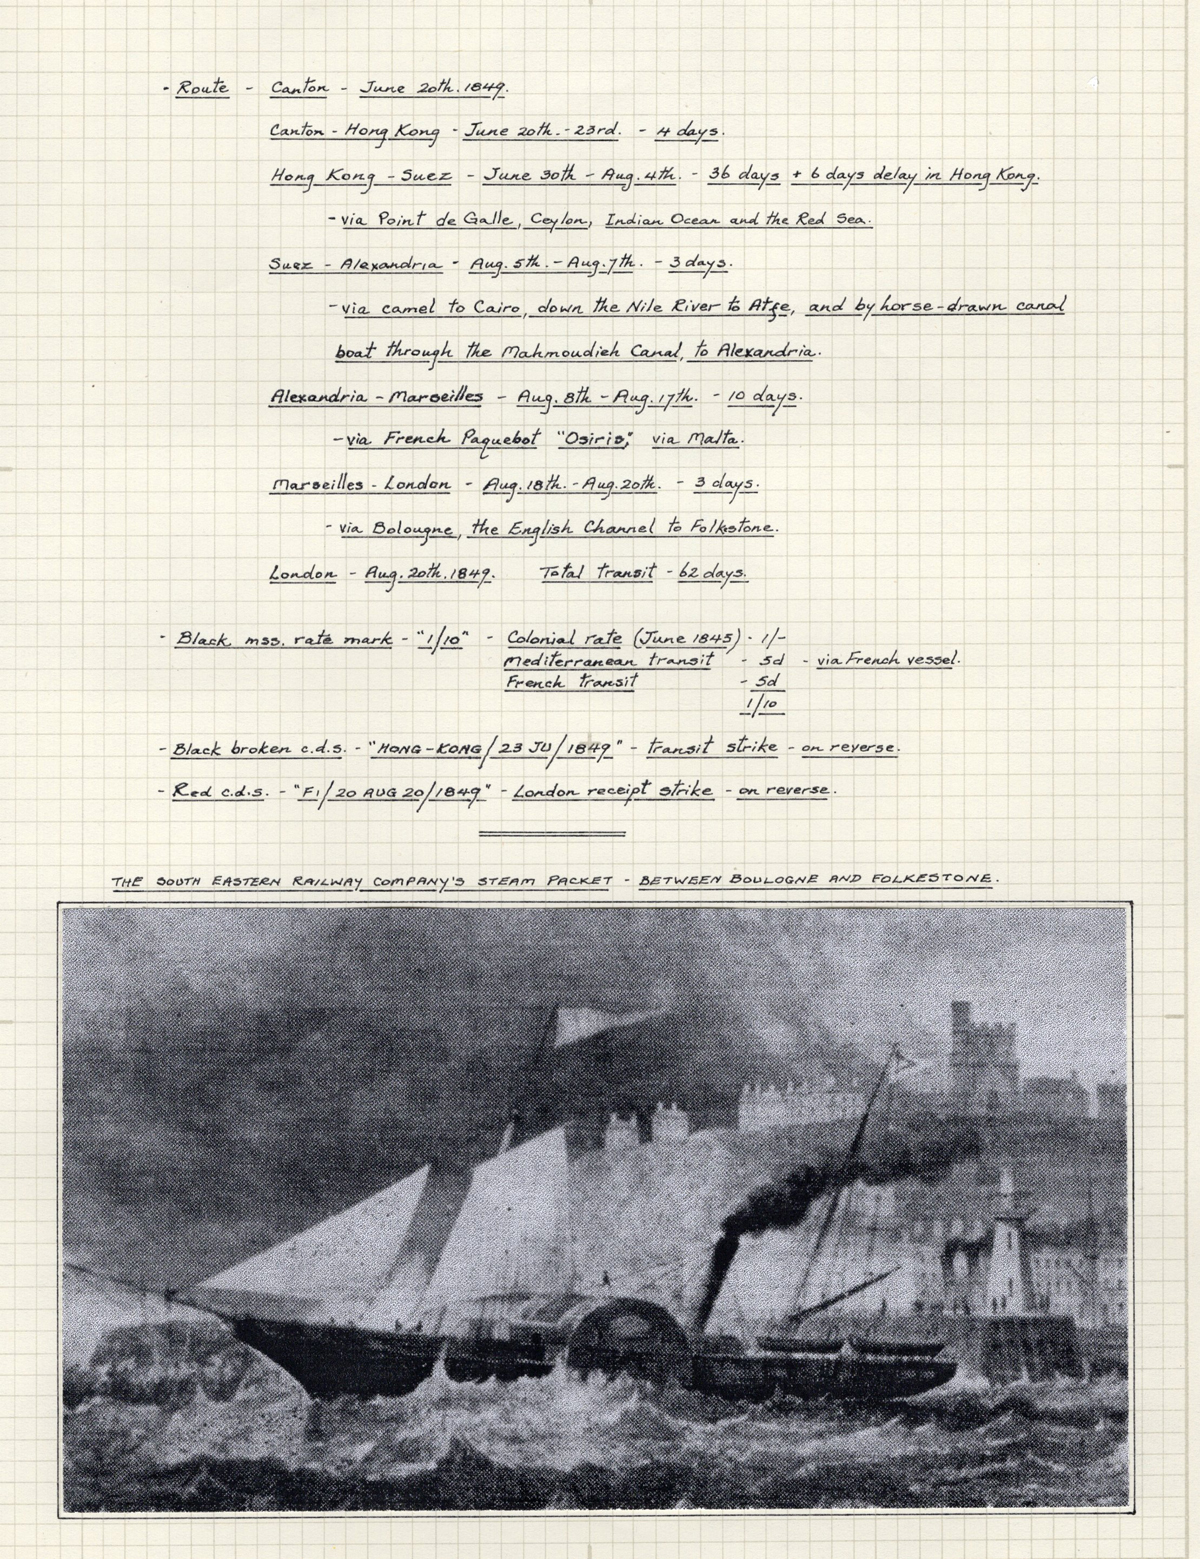 - Route - Canton - June 20th. 1849.
Canton - Hong Kong - June 20th. - 23rd. - 4 days.
Hong Kong - Suez - June 30th - Aug. 4th. - 36 days + 6 days delay in Hong Kong.
- via Point de Galle, Ceylon, Indian Ocean and the Red Sea.
Suez - Alexandria - Aug. 5th. - Aug. 7th. - 3 days.
- via camel to Cairo, down the Nile River to Atfe, and by horse-drawn canal
boat through the Mahmoudieh Canal, to Alexandria.
Alexandria - Marseilles - Aug. 8th - Aug. 17th. - 10 days.
- via French Paquebot "Osiris," via Malta.
Marseilles - London - Aug. 18th. - Aug. 20th. - 3 days.
- via Bolougne, the English Channel to Folkstone.
London - Aug. 20th. 1849. Total transit - 62 days.
- Black mss. rate mark - "1/10" - Colonial rate (June 1845) - 1/-
Mediterranean transit - 5d - via French vessel.
French transit - 5d
1/10
- Black broken c.d.s. - "HONG-KONG/23 JU/1849" - transit strike - on reverse.
- Red c.d.s. - "F1/20 AUG 20/1849" - London receipt strike - on reverse.
THE SOUTH EASTERN RAILWAY COMPANY'S STEAM PACKET - BETWEEN BOULOGNE AND FOLKESTONE.